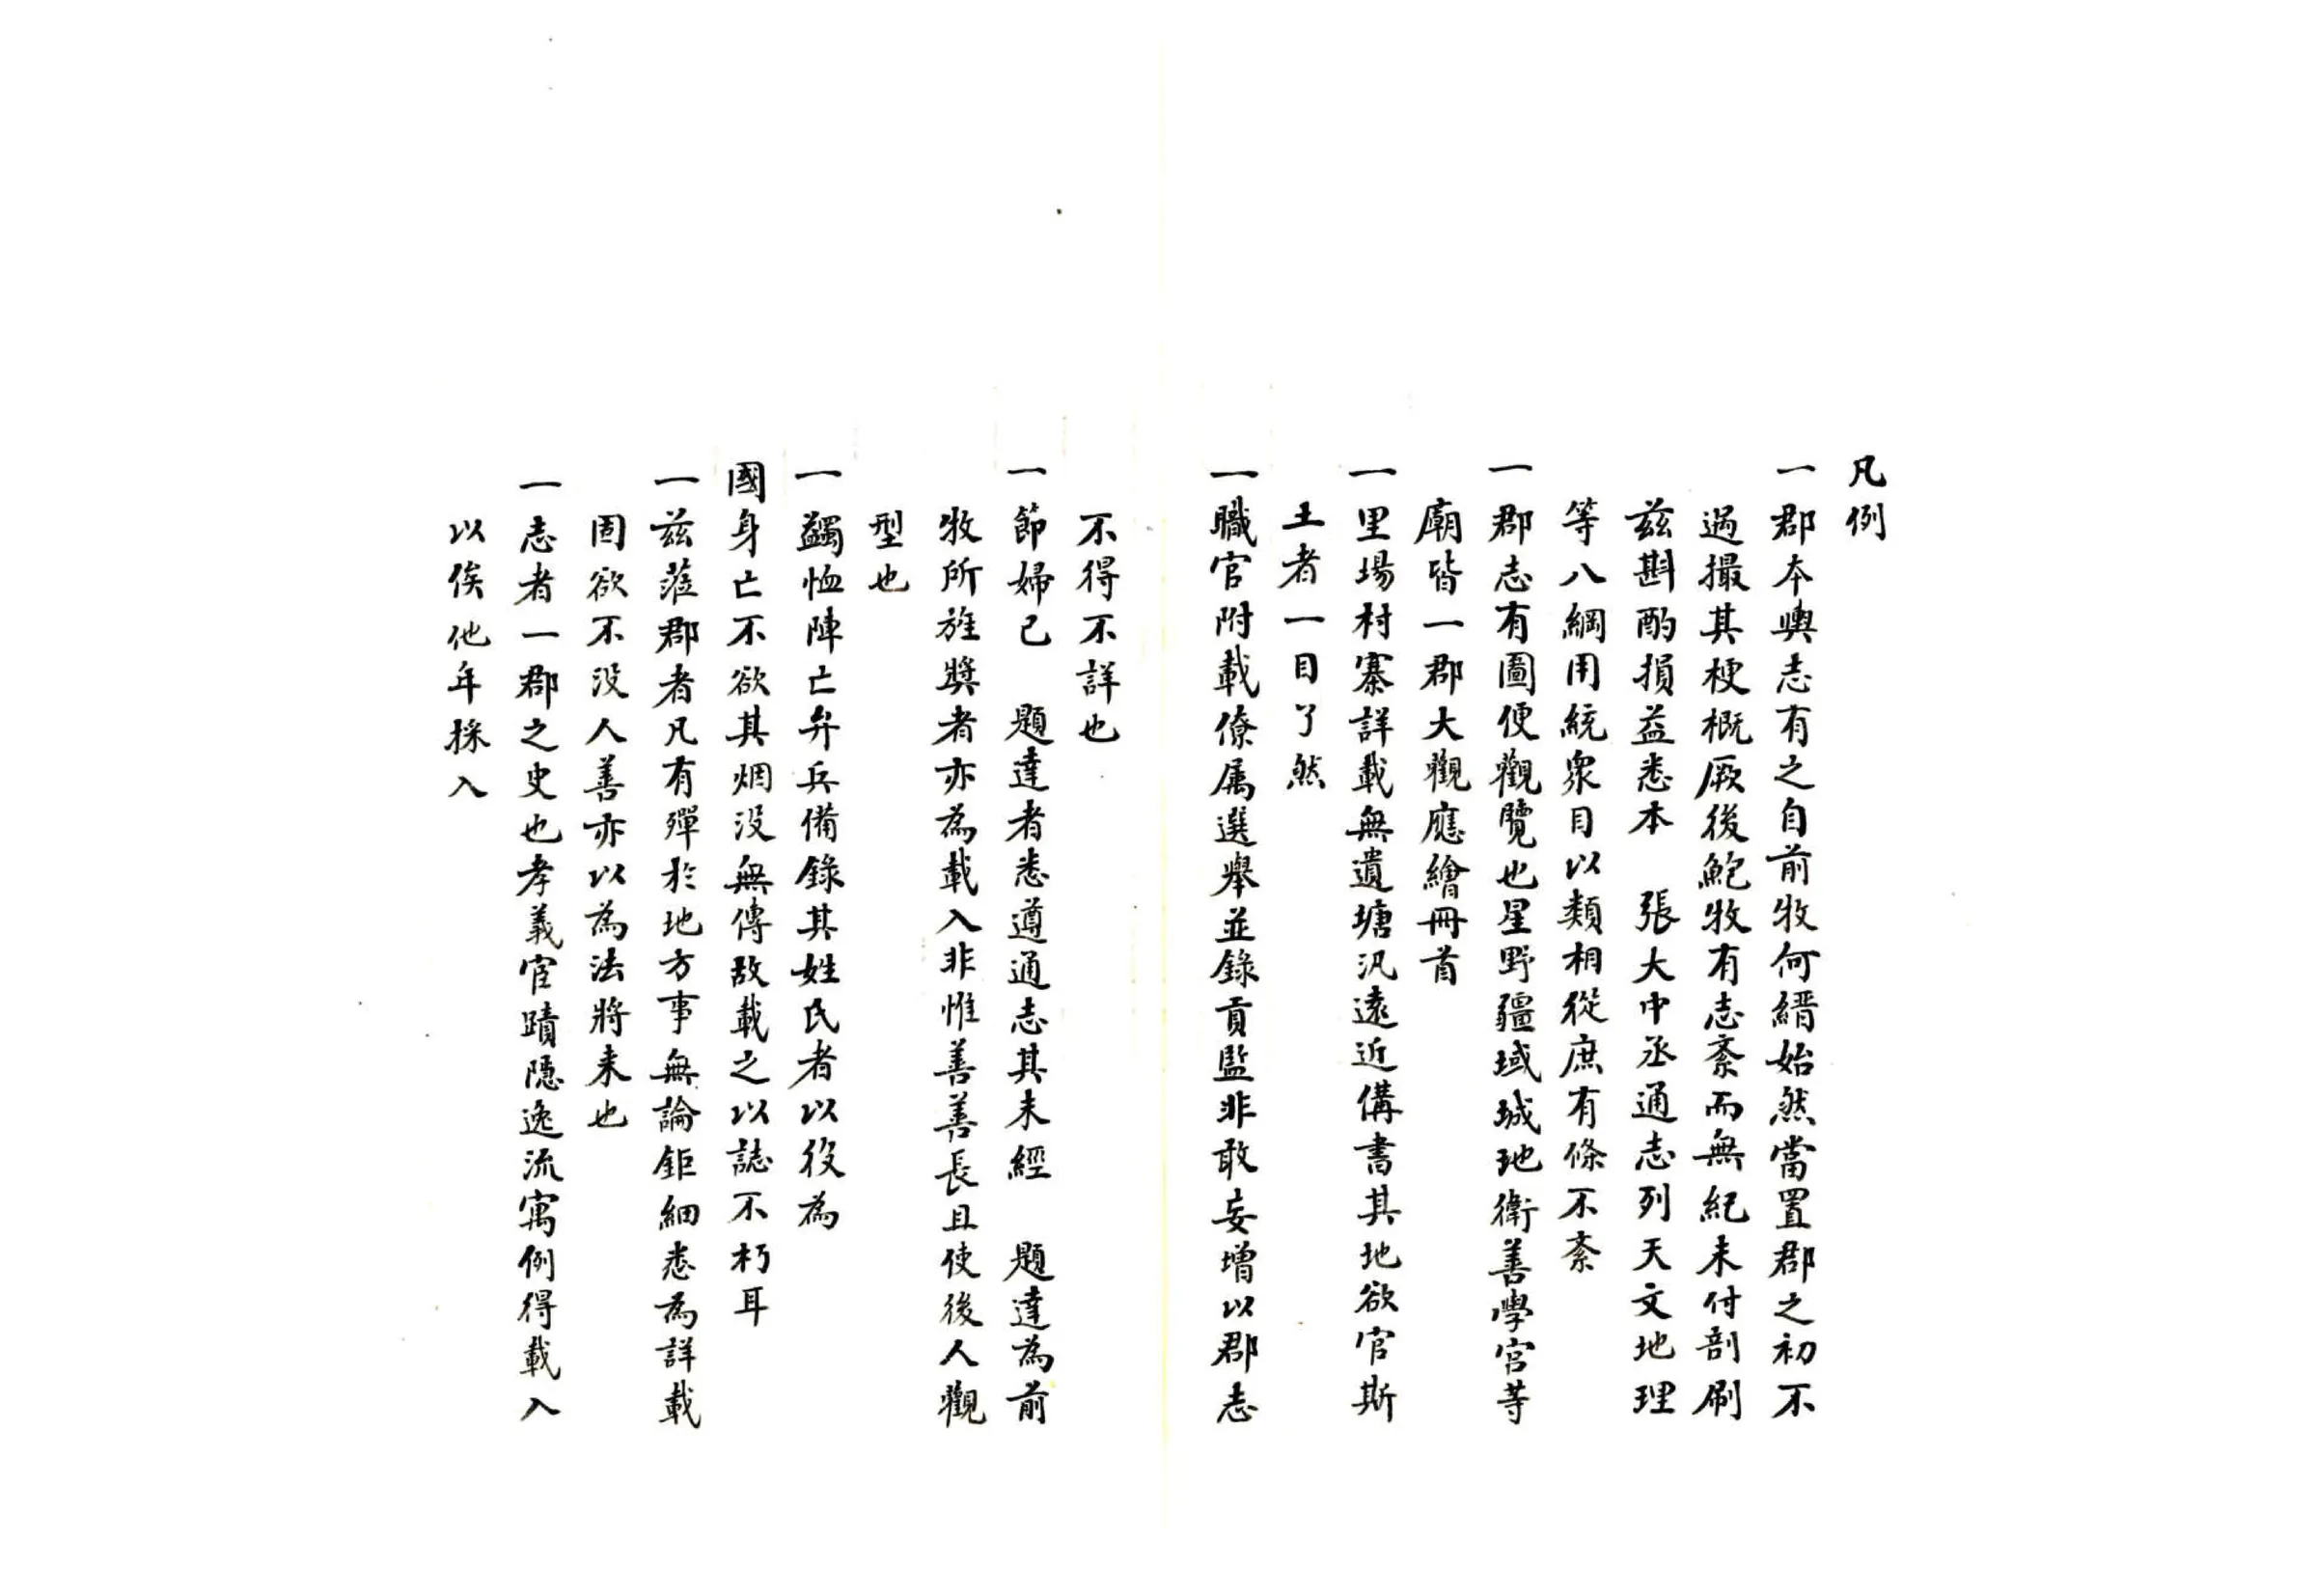 凡例
一郡本輿志有之自前牧何縉始然當置郡之初不
過撮其梗概厥後鮑牧有志紊而無紀未付剞刷
茲斟酌損益悉本　張大中丞通志列天文地理
等八綱用統衆目以類相從庶有條不紊
一郡志有圖便觀覽也星野疆域城池衛善學宮等
廟皆一郡大觀應繪冊首
一里場村寨詳載無遺塘汛遠近備書其地欲官斯
土者一目了然
一職官附載僚属選舉並錄貢監非敢妄增以郡志
不得不詳也
一節婦已　題達者悉遵通志其未經　題達為前
牧所旌獎者亦為載入非惟善善長且使後人觀
型也
一蠲恤陣亡弁兵備錄其姓氏者以役為
國身亡不欲其烟没無傳故載之以誌不朽耳
一茲蒞郡者凡有殫於地方事無論鉅細悉為詳載
固欲不没人善亦以為法將来也
一志者一郡之史也孝義宦蹟隱逸流寓例得載入
以俟他年採入